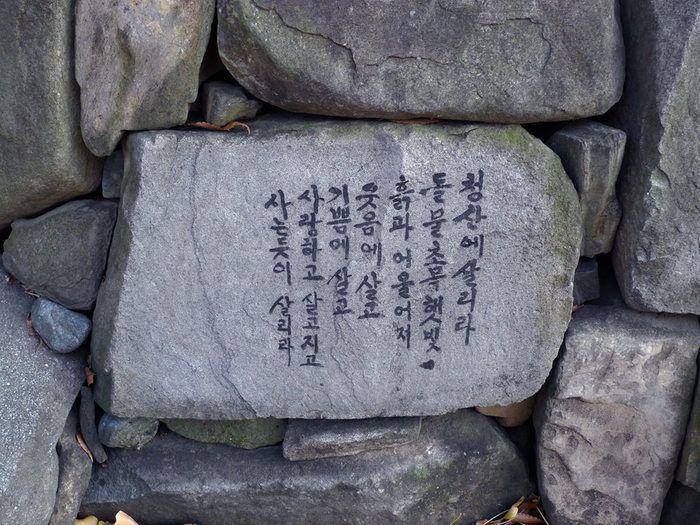 청산에 살리라
돌 물 초목 햇빛
흙과 어울어져
웃음에 살고
기쁨에 살고
사랑하고 살고지고
사는듯이 살리라